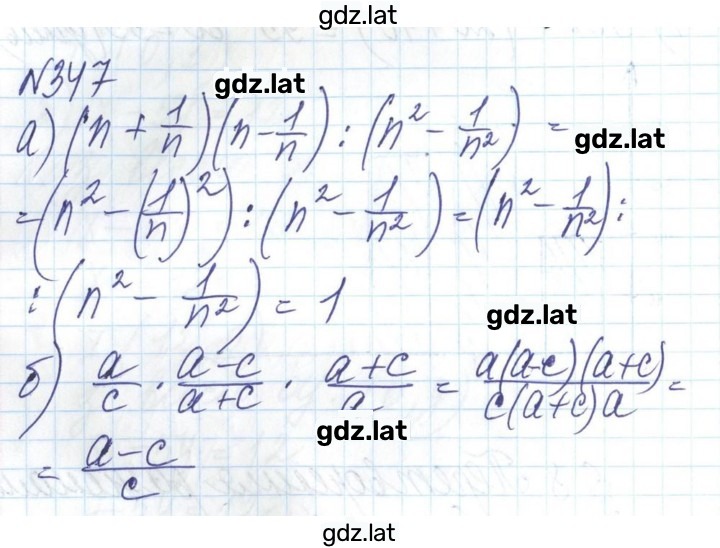 gdz.lat
N347
gdz.lat
а) (n + 1/n)(n - 1/n) : (n² - 1/n²) =
gdz.lat
= (n² - (1/n)²) : (n² - 1/n²) = (n² - 1/n²) :
: (n² - 1/n²) = 1
gdz.lat
б) a/c · (a-c)/(a+c) · (a+c)/a = a(a-c)(a+c)/c(a+c)a =
gdz.lat
= (a-c)/c
gdz.lat